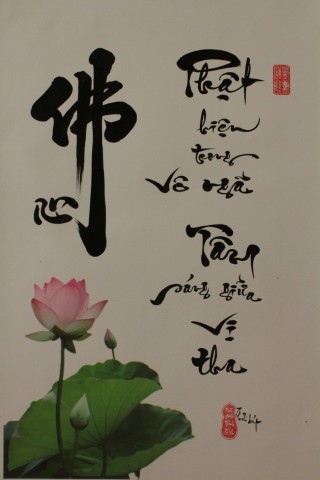 佛
心
Phật
hiện
trong
vô ngã
Tâm
sáng giữa
vị
tha